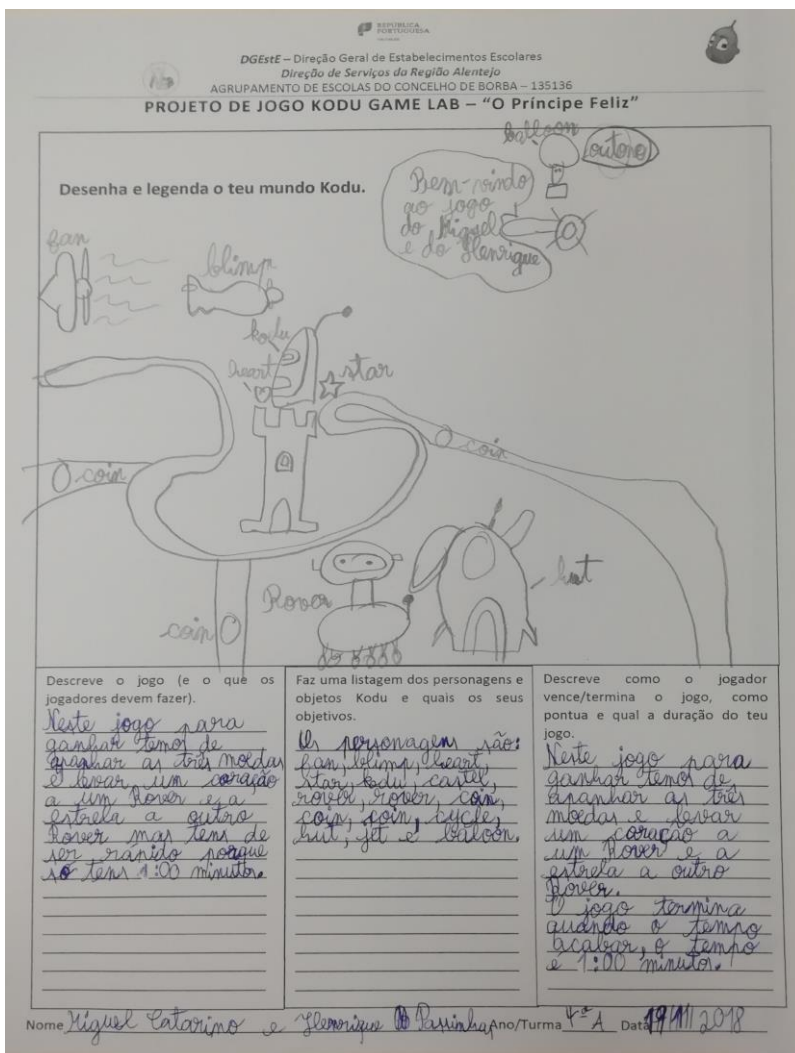 REPÚBLICA
PORTUGUESA
DGEstE – Direção Geral de Estabelecimentos Escolares
Direção de Serviços da Região Alentejo
AGRUPAMENTO DE ESCOLAS DO CONCELHO DE BORBA – 135136
PROJETO DE JOGO KODU GAME LAB – “O Príncipe Feliz”
balloon
outono
Desenha e legenda o teu mundo Kodu.
Bem-vindo
ao jogo
do Miguel
e do Henrique
fan
blimp
kodu
heart
star
coin
coin
Rover
hut
coin
Descreve o jogo (e o que os
jogadores devem fazer).
Neste jogo para
ganhar temos de
apanhar as três moedas
e levar um coração
a um Rover e a
estrela a outro
Rover mas tens de
ser rápido porque
só tens 1:00 minutos.
Faz uma listagem dos personagens e
objetos Kodu e quais os seus
objetivos.
Os personagens são:
fan, blimp, heart,
star, kodu, castel,
rover, rover, coin,
coin, coin, cycle,
hut, jet e baloon.
Descreve como o jogador
vence/termina o jogo, como
pontua e qual a duração do teu
jogo.
Neste jogo para
ganhar temos de
apanhar as três
moedas e levar
um coração a
um Rover e a
estrela a outro
Rover.
O jogo termina
quando o tempo
acabar, o tempo
é 1:00 minutos.
Nome Miguel Catarino e Henrique Passinhas Ano/Turma 4º A Data 19/11/2018